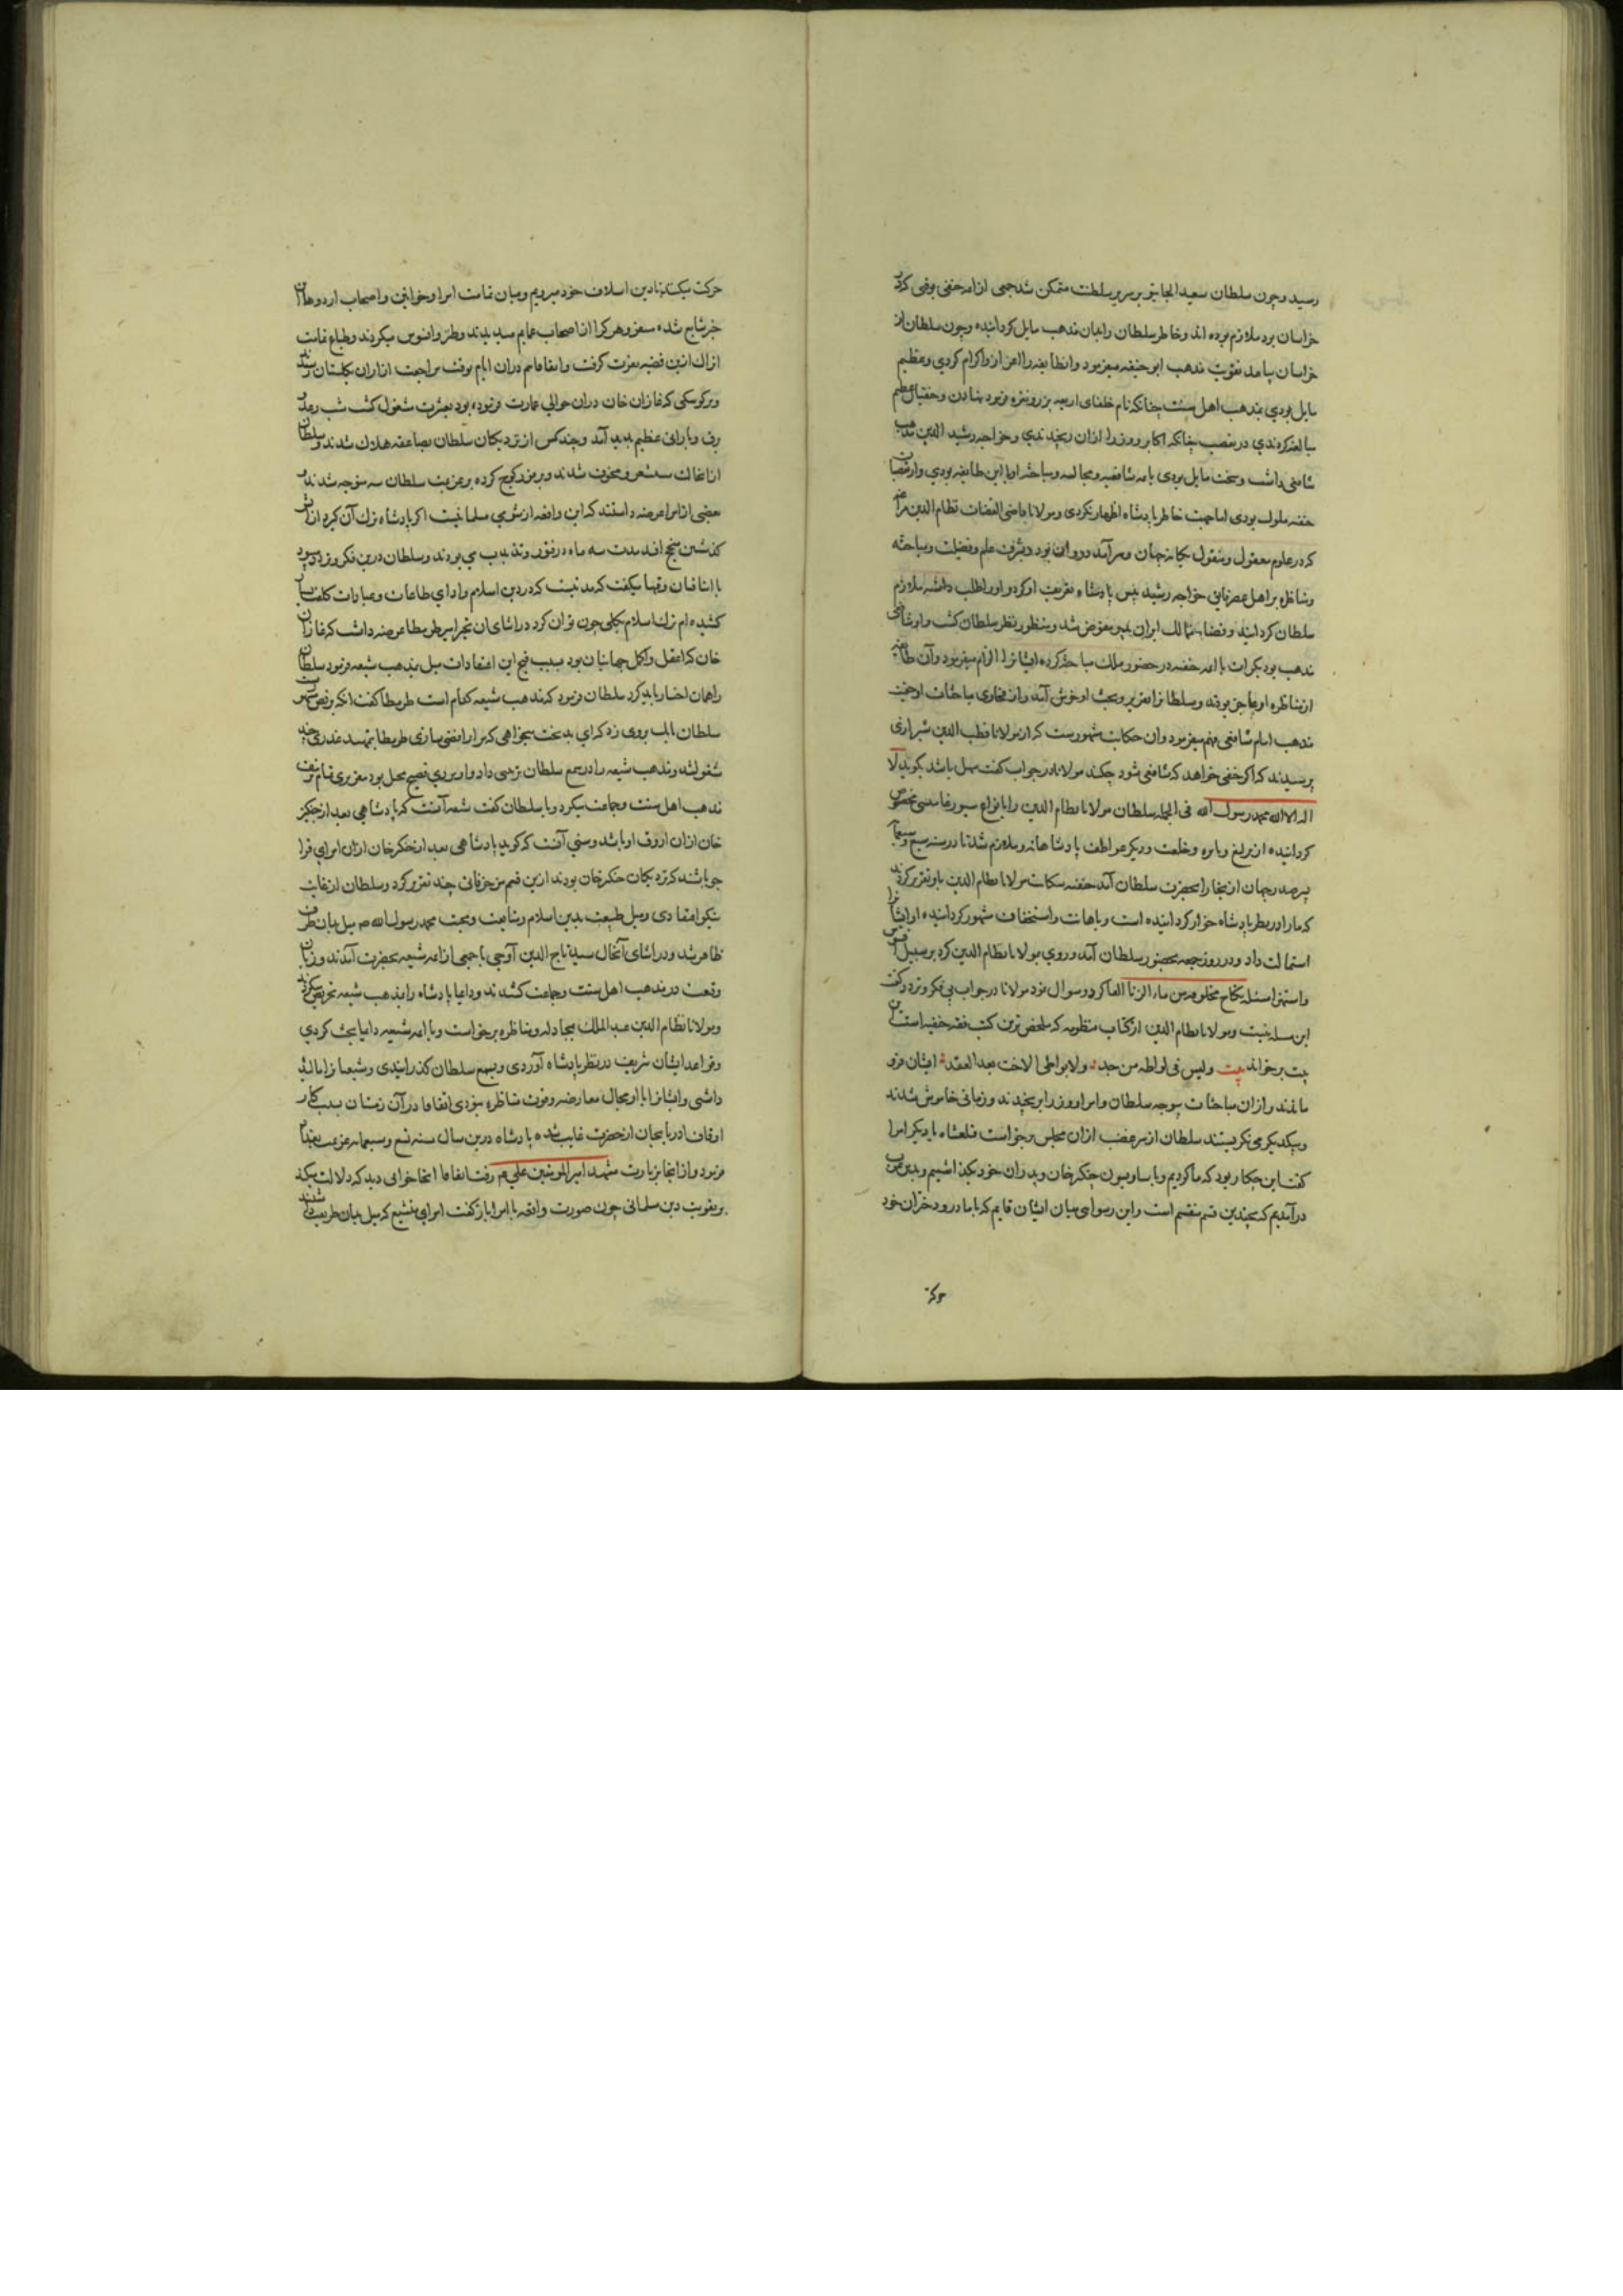 رسید و چون سلطان سعید الجایتو بر سریر سلطنت متمکن شد جمعی از ایمه حنفی بوقتی که در
خراسان بود ملازم بوده اند و خاطر سلطان را بدان مذهب مایل کردانیده و چون سلطان از
خراسان بیامد تقویت مذهب ابو حنیفه میفرمود و آن طایفه را اعزاز و اکرام کردی و عظیم
مایل بودی بمذهب اهل سنت چنانکه نام خلفای اربعه بر زر و نقره فرمود نهادن و حنفیان عظیم
مبالغه کردندی در تعصب چنانکه اکابر و وزرا ازان رنجیدندی و خواجه رشید الدین مذهب
شافعی داشت و سخت مایل بودی بایمه شافعیه و مجالسه و مباحثه او با این طایفه بودی و از تعصبات
حنفیه ملول بودی اما جهت خاطر پادشاه اظهار نکردی و مولانا قاضی القضات نظام الدین مراغه
که در علوم معقول و منقول یکانه جهان و سرآمد دوران بود و بشرف علم و فضیلت و مباحثه
و مناظره بر اهل عصر فایق خواجه رشید پیش پادشاه تعریف او کرد و او را طلب داشته ملازم
سلطان کردانید و قضای ممالک ایران بدو مفوض شد و منظور نظر سلطان کشت و او شافعی
مذهب بود بکرات با ایمه حنفیه در حضور ملک مباحثه کرده ایشانرا الزام میفرمود و آن طایفه
از مناظره او عاجز بودند و سلطان را تقریر و بحث او خوش آمد و از فحاوی مباحثات او حقیت
مذهب امام شافعی فهم میفرمود و آن حکایت مشهورست که از مولانا قطب الدین شیرازی
پرسیدند که اکر حنفی خواهد که شافعی شود چکند مولانا در جواب کفت سهل باشد بکوید لا
اله الا الله محمد رسول الله فی الجمله سلطان مولانا نظام الدین را بانواع سیورغامیشی مخصوص
کردانیده از یرلیغ و پایزه و خلعت و دیکر عواطف پادشاهانه و ملازم شد تا در سنه سبع و سبعمایه
پسر صدر جهان از بخارا بحضرت سلطان آمد حنفیه شکایت مولانا نظام الدین باو تقریر کردند
که ما را در نظر پادشاه خوار کردانیده است و باهانت و استخفاف مشهور کردانیده او ایشانرا
استمالت داد و در روز جمعه بحضور سلطان آمد و روی بمولانا نظام الدین کرد بر سبیل افسوس
و استهزا مسئله نکاح مخلوقه من ماء الزنا القا کرد و سوال فرمود مولانا در جواب بی فکر و تردد کفت
این مسله نیست و مولانا نظام الدین از کتاب منظومه که ملخص ترین کتب فقه حنفیه است این
بیت برخواند بیت ولیس فی لواطه من حد ولا بوطی الاخت بعد العقد ایشان فرو
ماندند و ازان مباحثات بی وجه سلطان و امرا و وزرا برنجیدند و زمانی خاموش شدند
و بیکدیکر می نکریستند سلطان از سر غضب ازان مجلس برخواست قتلغشاه با دیکر امرا
کفت این چکار بود که ما کردیم و یاسا و یوسون چنکیز خان و پدران خود بگذاشتیم و بدین عرب
درآمدیم که بچندین قسم منقسم است و این رسوایی میان ایشان قایم که با مادر و دختران خود
حرکت
حرکت میکنند تا دین اسلاف خود میرویم و میان تمامت امرا و خواتین و اصحاب اردوها این
خبر شایع شده و هر کرا از اصحاب عمایم میدیدند و طنز و افسوس میکردند و طباع تمامت
اتراک ازین قضیه نفرت کرفت و اتفاقا هم دران ایام بوقت مراجعت از اران بکلستان رسیدند
و بر کوشکی که غازان خان دران حوالی عمارت فرموده بود بعشرت مشغول کشت شب رعد و
برق و بارانی عظیم پدید آمد و چند کس از نزدیکان سلطان بصاعقه هلاک شدند و سلطان
ازانحالت مستشعر و مخوف شدند و بر فور کوچ کرده بر عزیمت سلطانیه متوجه شدند و
بعضی از امرا عرضه داشتند که این واقعه از شومی مسلمانیست اکر پادشاه ترک آن کیرد از آتش
گذشتن سهل افتد مدت سه ماه در فتور و تذبذب می بودند و سلطان درین فکر و تردد می بود
با ایناقان وقتها میکفت که مدتیست که در دین اسلام و ادای طاعات و عبادات کلفت بسیار
کشیده ام ترک اسلام بکلی چون توان کرد در اثنای آن تحیر امیر طرمطا عرضه داشت که غازان
خان که اعقل و اکمل جهانیان بود بسبب قبح این اعتقادات میل بمذهب شیعه فرمود سلطان
را همان اختیار باید کرد سلطان فرمود که مذهب شیعه کدام است طرمطا کفت آنکه برفض مشهورست
سلطان بانک بروی زد که ای بدبخت میخواهی که مرا رافضی سازی طرمطا بتمهید عذری چند
مشغول شد و مذهب شیعه را در سمع سلطان تزیین داد و او مردی فصیح بود تقریری تمام در تزییف
مذهب اهل سنت و جماعت میکرد و با سلطان کفت شیعه آنست که پادشاهی بعد از چنکیز
خان ازان اروغ او باشد و سنی آنست که کوید پادشاهی بعد از چنکیز خان ازان امرای قرا
جو باشد که نزدیکان چنکیز خان بودند ازین قسم مزخرفاتی چند تقریر کرد و سلطان از غایت
نیکو اعتقادی و میل طبیعت بدین اسلام و متابعت و محبت محمد رسول الله ص میل بدان طرف
ظاهر شد و در اثنای آنحال سید تاج الدین آوجی با جمعی از ایمه شیعه بحضرت آمدند و زبان
وقیعت در مذهب اهل سنت و جماعت کشیدند و دایما پادشاه را بمذهب شیعه تحریض میکردند
و مولانا نظام الدین عبد الملک بمجادله و مناظره برخواست و با ایمه شیعه دایما بحث کردی
و قواعد ایشان در نظر پادشاه آوردی و بسمع سلطان کذرانیدی و شیعه را مالیده
داشتی و ایشانرا با او مجال معارضه و قوت مناظره نبودی اتفاقا در آن زمستان بسبب کار
اوقاف اذربایجان از حضرت غایب شده پادشاه درین سال سنه تسع و سبعمایه عزیمت بغداد
فرمود و از انجا بزیارت مشهد امیر المومنین علی ع م رفت اتفاقا انجا خوابی دید که دلالت میکند
بر تقویت دین مسلمانی چون صورت واقعه با امرا باز کفت امرای متشیع که میل بدان طریقه داشتند